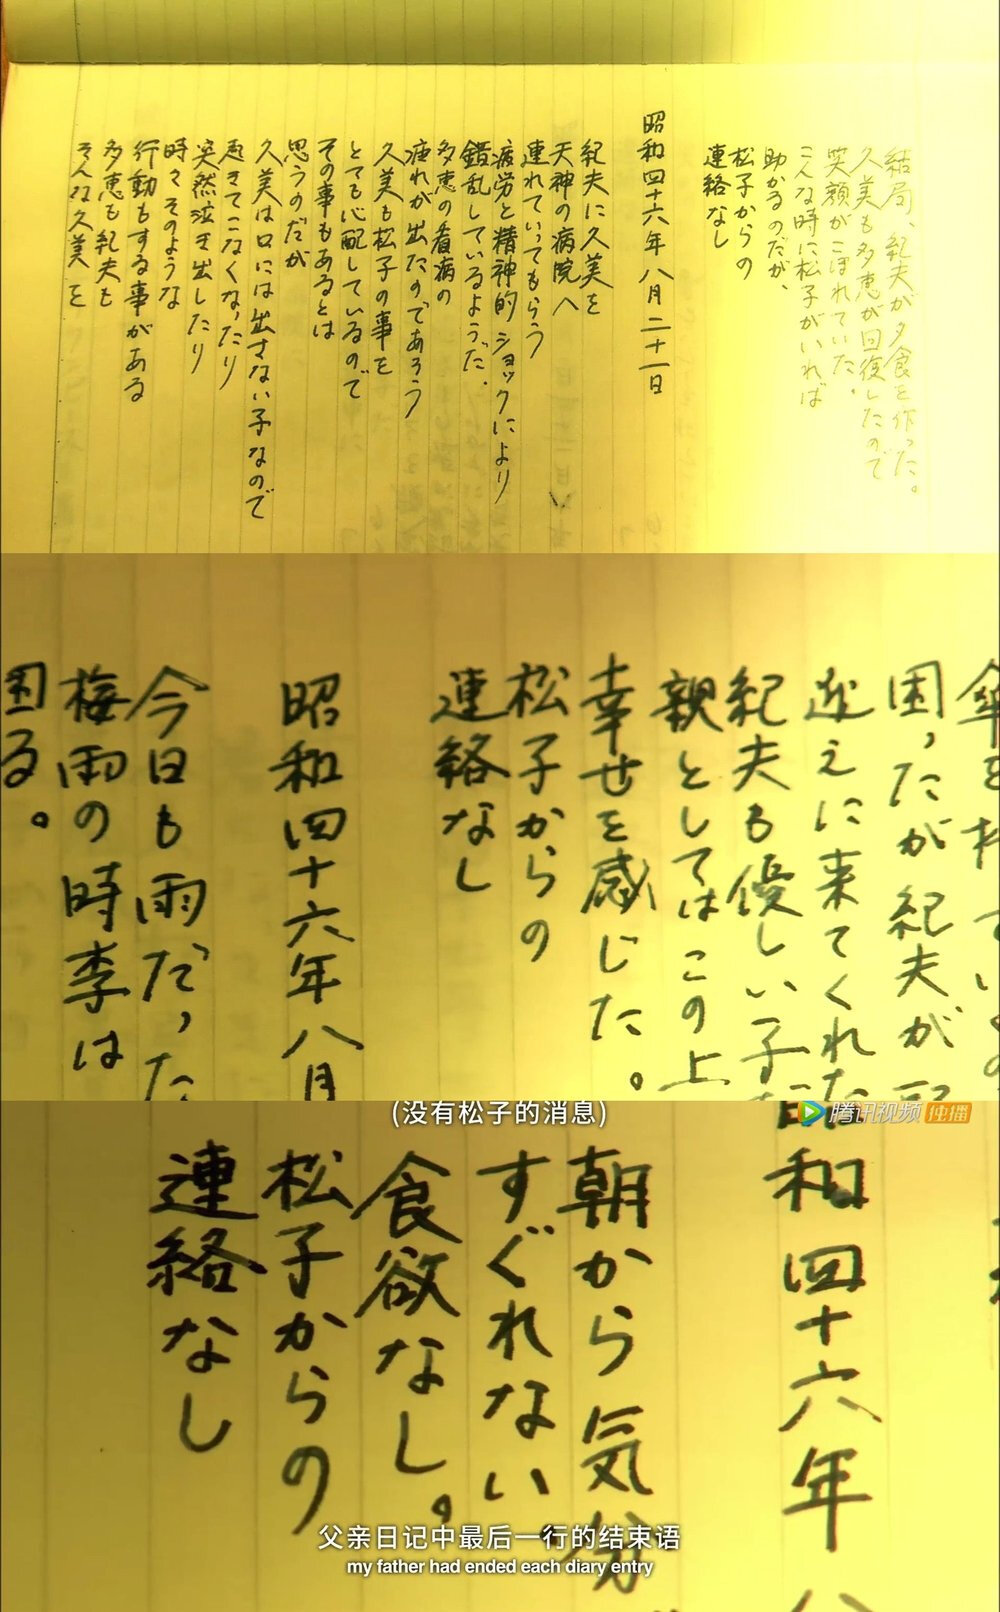 結局、紀夫が夕食を作った。
久美も多恵が回復したので
笑顔がこぼれていた。
こんな時に松子がいれば
助かるのだが、
松子からの
連絡なし
昭和四十六年八月二十一日
紀夫に久美を
天神の病院へ
連れていってもらう
疲労と精神的ショックにより
錯乱しているようだ.
多恵の看病の
疲れが出たのであろう
久美も松子の事を
とても心配しているので
その事もあるとは
思うのだが
久美は口には出さない子なので
起きてこなくなったり
突然泣き出したり
時々そのような
行動もする事がある
多恵も紀夫も
そんな久美を
傘を持ってい
困ったが紀夫が
迎えに来てくれた
紀夫も優しい子
親としてはこの上
幸せを感じた。
松子からの
連絡なし
昭和四十六年八月
今日も雨だった
梅雨の時季は
困る。
(没有松子的消息)
腾讯视频 独播
昭和四十六年八
朝から気分
すぐれない
食欲なし。
松子からの
連絡なし
父亲日记中最后一行的结束语
my father had ended each diary entry